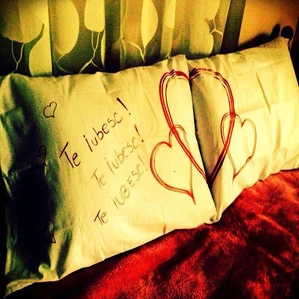 Te iubesc!
Te iubesc!
Te IUBESC!